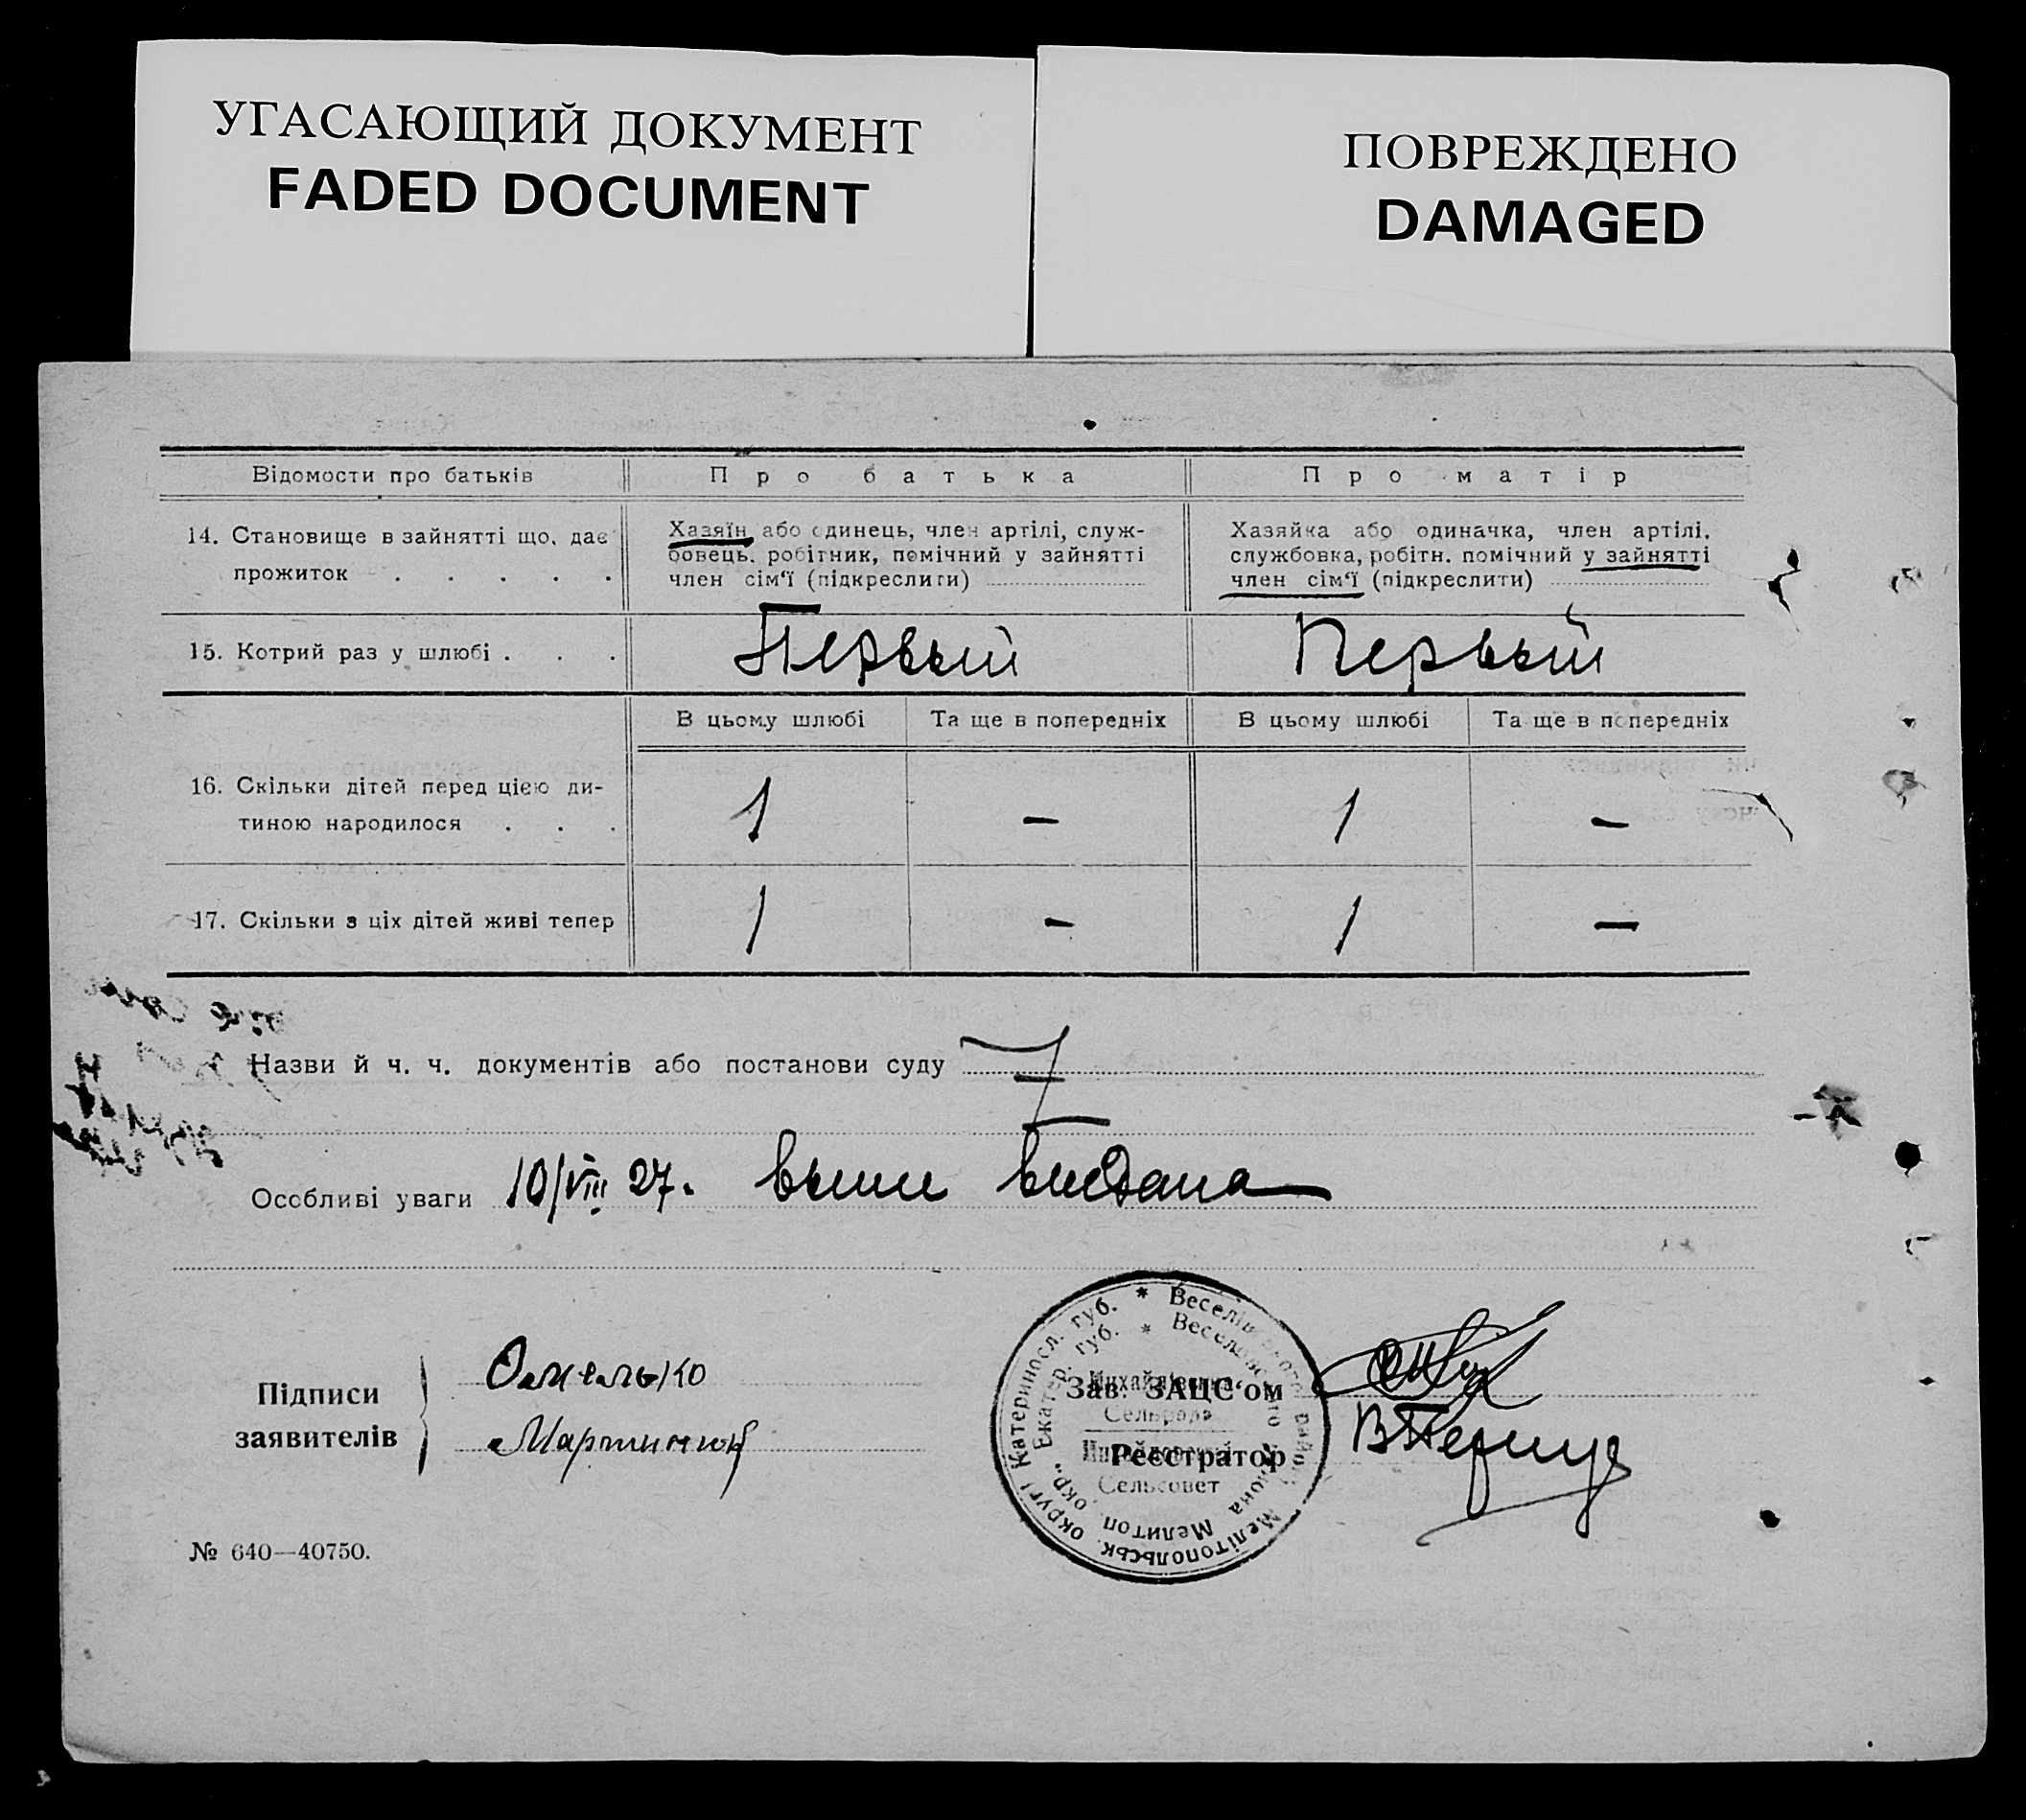 УГАСАЮЩИЙ ДОКУМЕНТ
FADED DOCUMENT
ПОВРЕЖДЕНО
DAMAGED
Відомости про батьків
Про батька
Про матір
14. Становище в зайнятті що, дає
прожиток . . . . .
Хазяїн або одинець, член артілі, служ-
бовець, робітник, помічний у зайнятті
член сім‘ї (підкреслити)
Хазяйка або одиначка, член артілі,
службовка, робітн. помічний у зайнятті
член сім‘ї (підкреслити)
15. Котрий раз у шлюбі . . .
Первый
Первый
В цьому шлюбі
Та ще в попередніх
В цьому шлюбі
Та ще в попередніх
16. Скільки дітей перед цією ди-
тиною народилося . . .
1
—
1
—
17. Скільки з ціх дітей живі тепер
1
—
1
—
Назви й ч. ч. документів або постанови суду
Особливі уваги 10/VIII 27.
Підписи
заявителів
Омелько
Мартинюк
* Веселівського району Мелітопольськ. округи Катериносл. губ.
* Веселовского района Мелитоп. окр., Екатер. губ.
Сельрада
Сельсовет
Зав. ЗАЦС‘ом
Реєстратор
№ 640—40750.